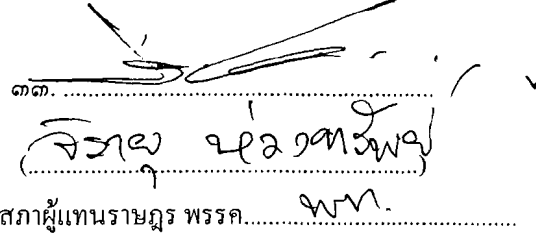 ๓๓. ..........................................................
(จิรายุ ห่วงทรัพย์)
สภาผู้แทนราษฎร พรรค.....พท......................